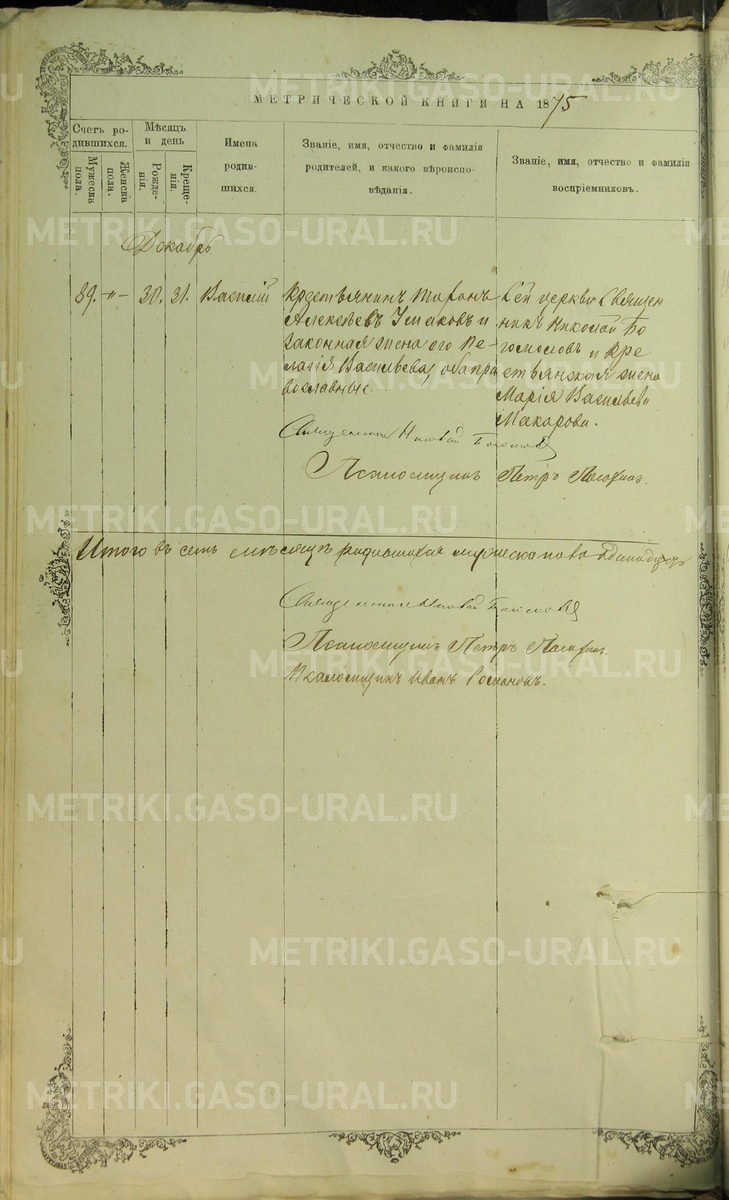 МЕТРИЧЕСКОЙ КНИГИ НА 1875
Счетъ родившихся.
Мужеска пола.
Женска пола.
Мѣсяцъ и день
Рожденія.
Крещенія.
Имена родившихся.
Званіе, имя, отчество и фамилія
родителей, и какого вѣроиспо-
вѣданія.
Званіе, имя, отчество и фамилія
воспріемниковъ.
Декабрь
89. -„- 30. 31. Василій
Крестьянинъ
Алексѣевъ и
законная жена его Пе-
лагія Васильева, оба пра
вославные.
Сей церкви Священ
никъ Николай Бо
гомоловъ и Кре
стьянская жена
Марія Васильева
Макарова.
Священникъ Николай
Псаломщикъ Петръ
Итого въ семъ мѣсяцѣ родившихся мужеска пола
Священникъ Николай
Псаломщикъ Петръ
Псаломщикъ Иванъ
METRIKI.GASO-URAL.RU